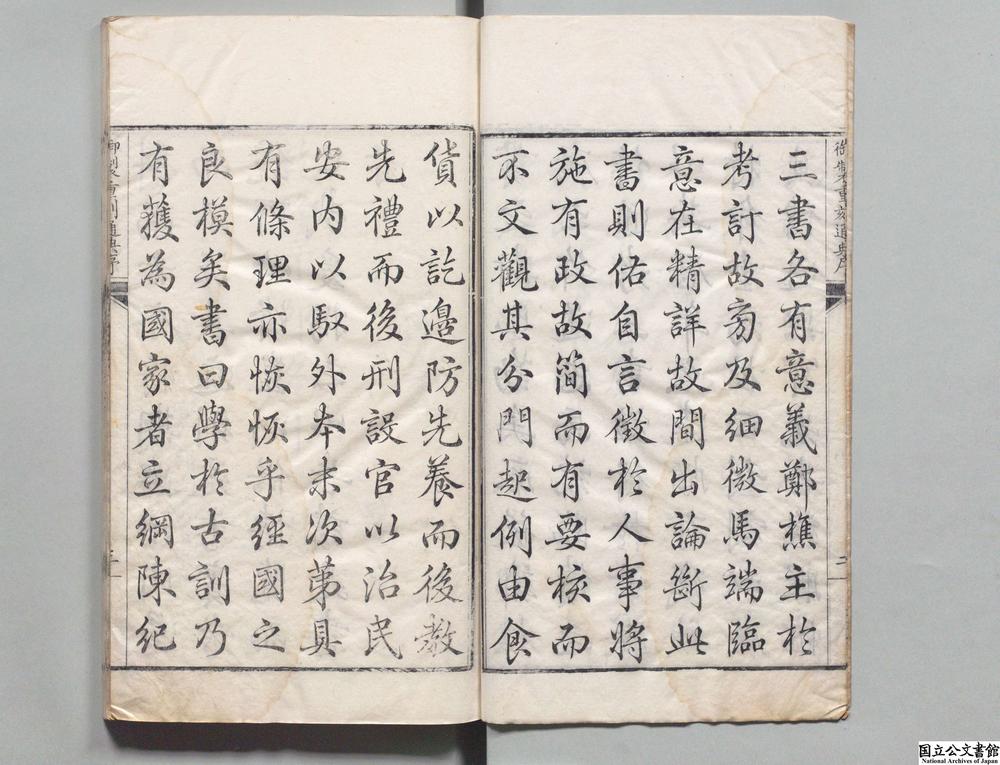 御製重刻通典序
三書各有意義鄭樵主於
考訂故旁及細微馬端臨
意在精詳故間出論斷此
書則佑自言徵於人事將
施有政故簡而有要核而
不文觀其分門起例由食
二
貨以訖邊防先養而後教
先禮而後刑設官以治民
安內以馭外本末次第具
有條理亦恢恢乎經國之
良模矣書曰學於古訓乃
有獲為國家者立綱陳紀
御製重刻通典序
三
国立公文書館
National Archives of Japan